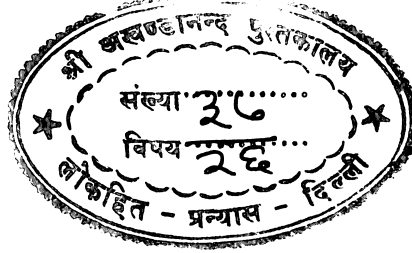 श्री अखण्डानन्द पुस्तकालय
संख्या ३८
विषय २६
लोकहित - प्रन्यास - दिल्ली